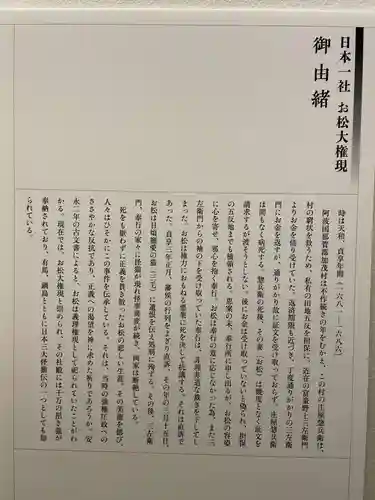 日本一社 お松大権現
御由緒
時は天和、貞享年間（一六八一―一六八六）
阿波国那賀郡加茂村は不作続きの年をむかえ、この村の庄屋惣兵衛は、
村の窮状を救うため、私有の田地五反を担保に、近在の富豪野上三左衛門
よりお金を借り受けていた。返済期限も近づき、丁度通りがかりの三左衛
門にお金を返すが、通りがかり故に証文を受け取っておらず、庄屋惣兵衛
は間もなく病死する。惣兵衛の死後、その妻「お松」は幾度となく証文を
請求するが渡そうとしない。後にお金は受け取っていないと偽られ、担保
の五反地までも横領される。思案の末、奉行所に申し出るが、お松の容姿
に心を寄せ、邪心を抱く奉行。お松は奉行の意に応じなかった為、また三
左衛門からの袖の下を受け取っていた奉行は、非理非道な裁きを下してし
まった。お松は権力におもねる悪業に死を決して抗議する。それは直訴で
あった。貞享三年正月、藩侯の行列をよぎり直訴、その年の三月十五日、
お松は日頃寵愛の猫（三毛）に遺恨を伝え処刑に殉ずる。その後、三左衛
門、奉行の家々に怪猫が現れ怪事異変が続き、両家は断絶している。
死をも厭わずに正義を貫き散ったお松の悲しい生涯、その美徳を偲び、
人々はひそかにこの事件を伝承している。それは、当時の強権圧政への
ささやかな反抗であり、正義への渇望を神に求めた祈りであろうか。安
永二年の古文書によると、お松は義理権現として祀られていたことがわ
かる。現在では、お松大権現と崇められ、その社殿には千万の招き猫が
奉納されており、有馬、鍋島とともに日本三大怪猫伝の一つとしても知
られている。